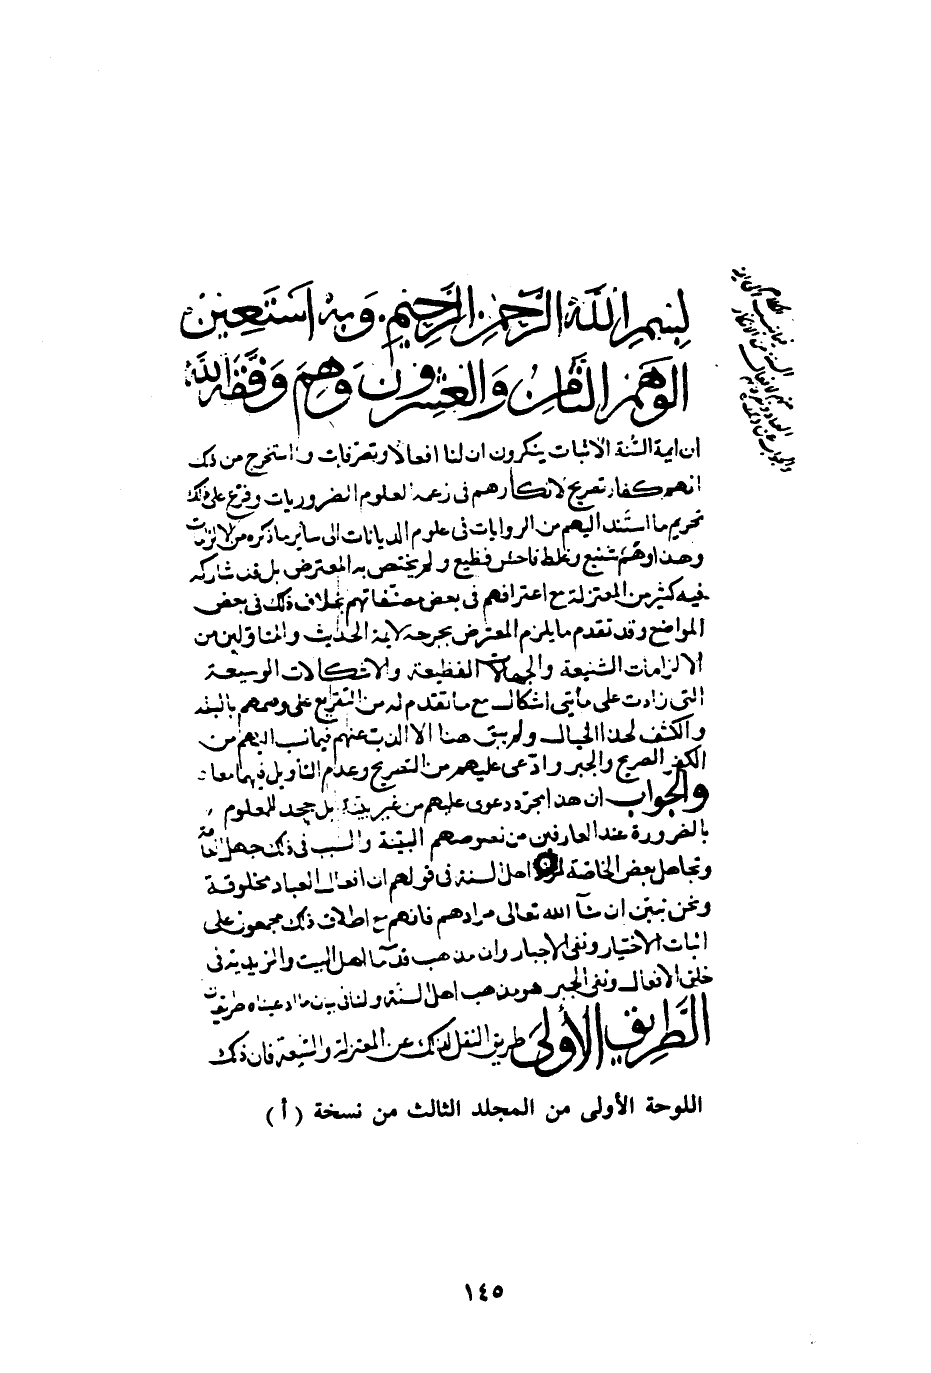 بسم الله الرحمن الرحيم. وبه استعين
الوهم الثامن والعشرون وهم وفقه الله
ان ايمة السُّنة الاثبات ينكرون ان لنا افعالا وتصرفات واستخرج من ذلك
انهم كفار تصريح لانكارهم في زعمه العلوم الضروريات وفرع على ذلك
تحريم ما استند اليهم من الروايات في علوم الديانات الى ساير ما ذكره من الالزامات
وهذا وهم شنيع وغلط فاحش فظيع ولم يختص به المعترض بل قد شاركه
فيه كثير من المعتزلة مع اعترافهم في بعض مصنفاتهم بخلاف ذلك في بعض
المواضع وقد تقدم ما يلزم المعترض بجرحه لايمة الحديث والمتاولين من
الالزامات الشنيعة والجهالات الفظيعة والاشكالات الوسيعة
التي زادت على مأيتي اشكال مع ما تقدم له من التقرير على وصمهم بالبله
والكشف لهذا الخيال ولم يبق هنا الا الذب عنهم فيما نسب اليهم من
الكفر الصريح والجبر وادّعى عليهم من التصريح وعدم التأويل فيهما معا
والجواب ان هذا مجرد دعوى عليهم من غير بينة بل جحد للمعلوم
بالضرورة عند العارفين من نصوصهم البينة والسبب في ذلك جهل عامة
وتجاهل بعض الخاصة اهل السنة في قولهم ان افعال العباد مخلوقة
ونحن نبين ان شآ الله تعالى مرادهم فانهم مع اطلاق ذلك مجمعون على
اثبات الاختيار ونفي الاجبار وان مذهب قدمآ اهل البيت والزيدية في
خلق الافعال ونفي الجبر هو مذهب اهل السنة ولنا في بيان ما ادعيناه طريقان
الطريق الأولى طريق النقل لذلك عن المعتزلة والشيعة فان ذلك
اللوحة الأولى من المجلد الثالث من نسخة (أ)
١٤٥